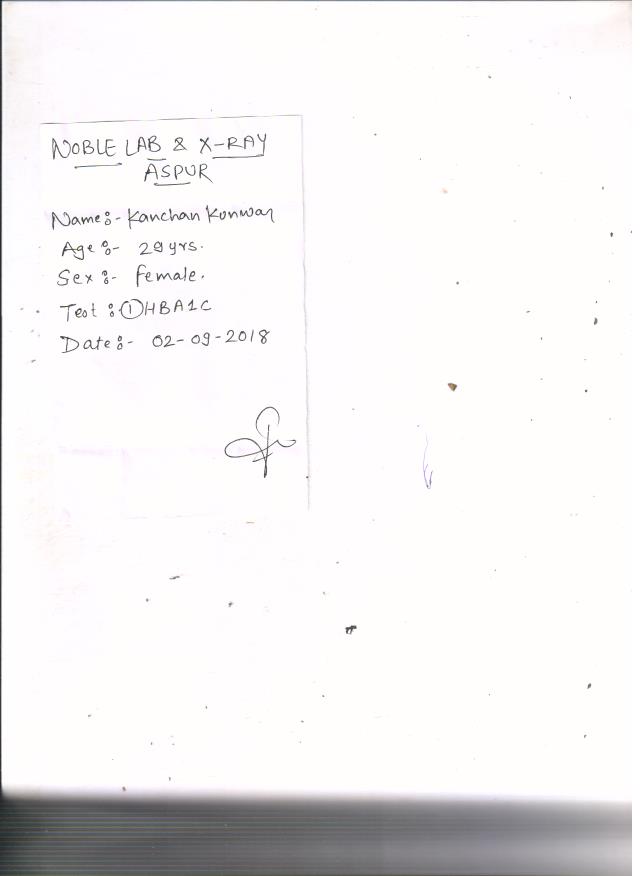 NOBLE LAB & X-RAY
ASPUR
Name:- Kanchan Kunwar
Age:- 29 yrs.
Sex:- female.
Test: ① HBA1C
Date:- 02-09-2018